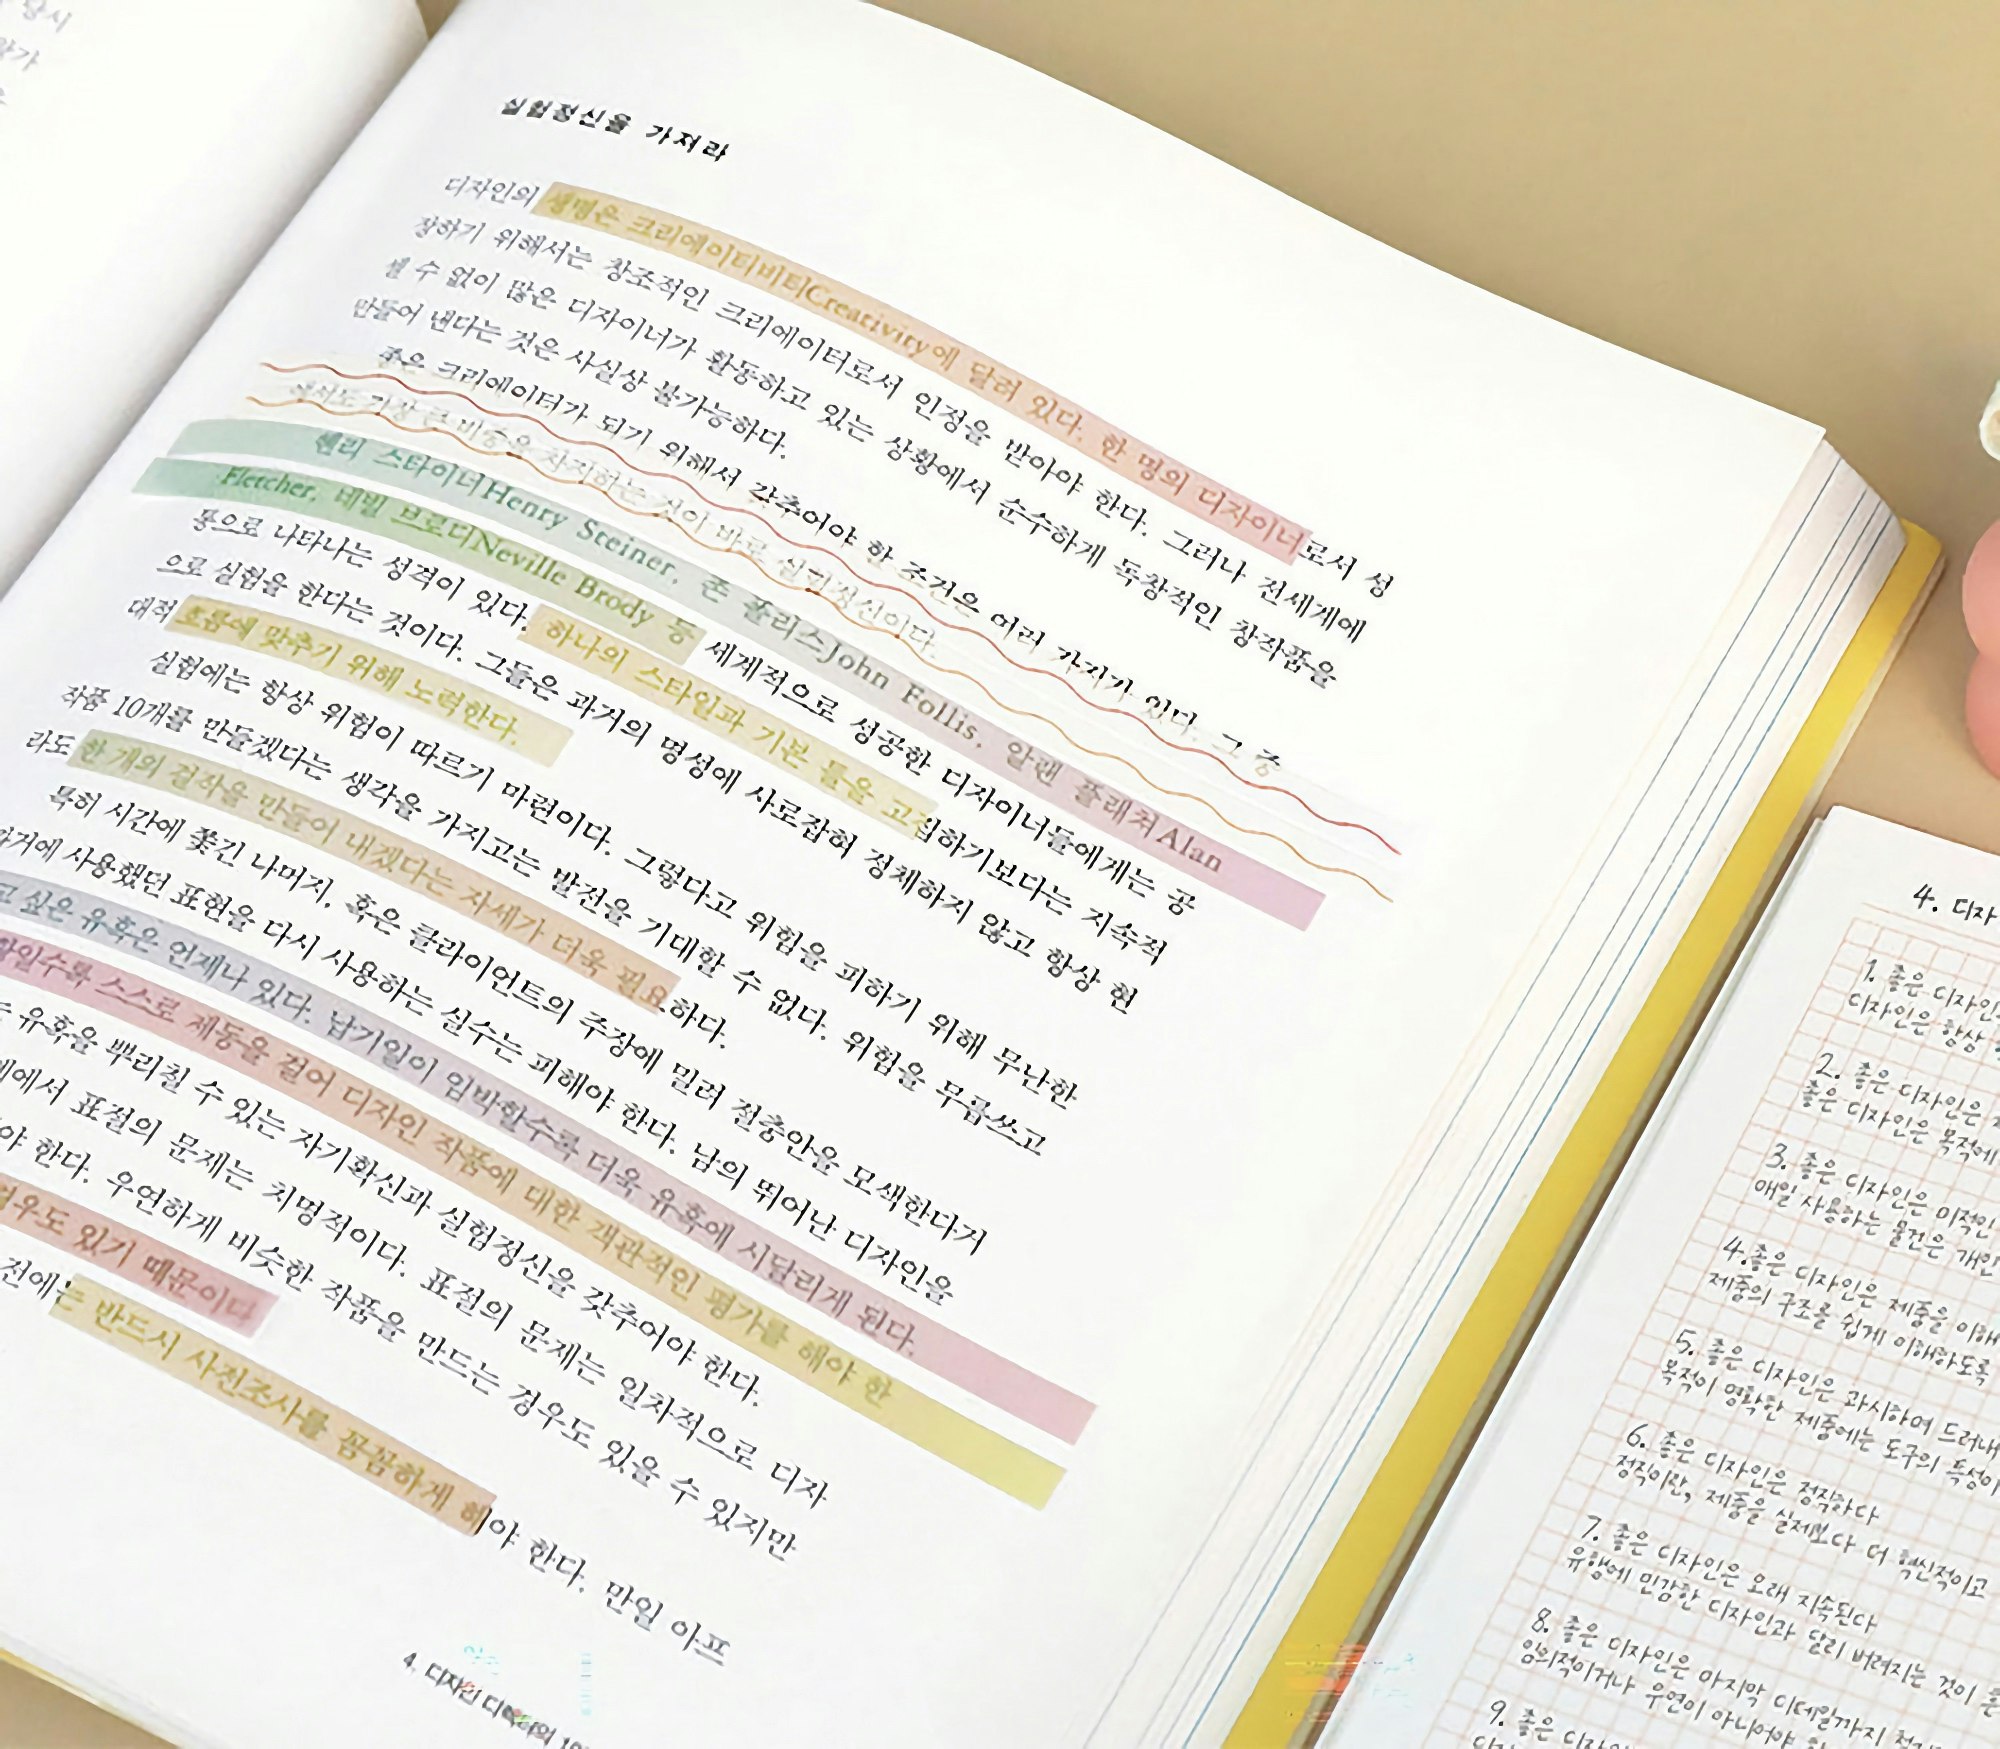 실험정신을 가져라
디자인의 생명은 크리에이티비티Creativity에 달려 있다. 한 명의 디자이너로서 성
장하기 위해서는 창조적인 크리에이터로서 인정을 받아야 한다. 그러나 전세계에
셀 수 없이 많은 디자이너가 활동하고 있는 상황에서 순수하게 독창적인 창작품을
만들어 낸다는 것은 사실상 불가능하다.
좋은 크리에이터가 되기 위해서 갖추어야 한 조건은 여러 가지가 있다. 그 중
에서도 가장 큰 비중을 차지하는 것이 바로 실험정신이다.
헨리 스타이너Henry Steiner, 존 폴리스John Follis, 알랜 플래처Alan
Fletcher, 네빌 브로디Neville Brody 등 세계적으로 성공한 디자이너들에게는 공
통으로 나타나는 성격이 있다. 하나의 스타일과 기본 틀을 고집하기보다는 지속적
으로 실험을 한다는 것이다. 그들은 과거의 명성에 사로잡혀 정체하지 않고 항상 현
대적 흐름에 맞추기 위해 노력한다.
실험에는 항상 위험이 따르기 마련이다. 그렇다고 위험을 피하기 위해 무난한
작품 10개를 만들겠다는 생각을 가지고는 발전을 기대할 수 없다. 위험을 무릅쓰고
라도 한 개의 걸작을 만들어 내겠다는 자세가 더욱 필요하다.
특히 시간에 쫓긴 나머지, 혹은 클라이언트의 주장에 밀려 절충안을 모색한다거
과거에 사용했던 표현을 다시 사용하는 실수는 피해야 한다. 남의 뛰어난 디자인을
고 싶은 유혹은 언제나 있다. 납기일이 임박할수록 더욱 유혹에 시달리게 된다.
스스로 제동을 걸어 디자인 작품에 대한 객관적인 평가를 해야 한
유혹을 뿌리칠 수 있는 자기확신과 실험정신을 갖추어야 한다.
에서 표절의 문제는 치명적이다. 표절의 문제는 일차적으로 디자
야 한다. 우연하게 비슷한 작품을 만드는 경우도 있을 수 있지만
경우도 있기 때문이다
전에는 반드시 사전조사를 꼼꼼하게 해야 한다. 만일 아프
4. 디자인 디렉터의
4. 디자
1. 좋은 디자인
디자인은 항상
2. 좋은 디자인은
좋은 디자인은 목적에
3. 좋은 디자인은 미적인
매일 사용하는 물건은 개인
4. 좋은 디자인은 제품을 이해
제품의 구조를 쉽게 이해하도록
5. 좋은 디자인은 과시하며 드러내
목적이 명확한 제품에는 도구의 특성이
6. 좋은 디자인은 정직하다
정직이란, 제품을 실제보다 더 혁신적이고
7. 좋은 디자인은 오래 지속된다
유행에 민감한 디자인과 달리 버려지는 것이
8. 좋은 디자인은 마지막 디테일까지
임의적이거나 우연이 아니어야
9. 좋은